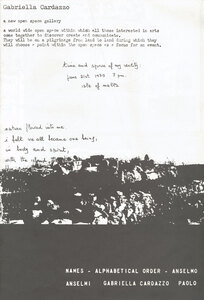 Gabriella Cardazzo
a new open space gallery
a world wide open space within which all those interested in arts
come together to discover create and communicate.
They will be on a pilgrimage from land to land during which they
will choose a point within the open space as a focus for an event.
time and space of my reality
june 21st 1979 7 p.m.
isle of malta
nature flowed into me.
I felt we all became one being,
in body and spirit,
with the island
NAMES - ALPHABETICAL ORDER - ANSELMO
ANSELMI GABRIELLA CARDAZZO PAOLO